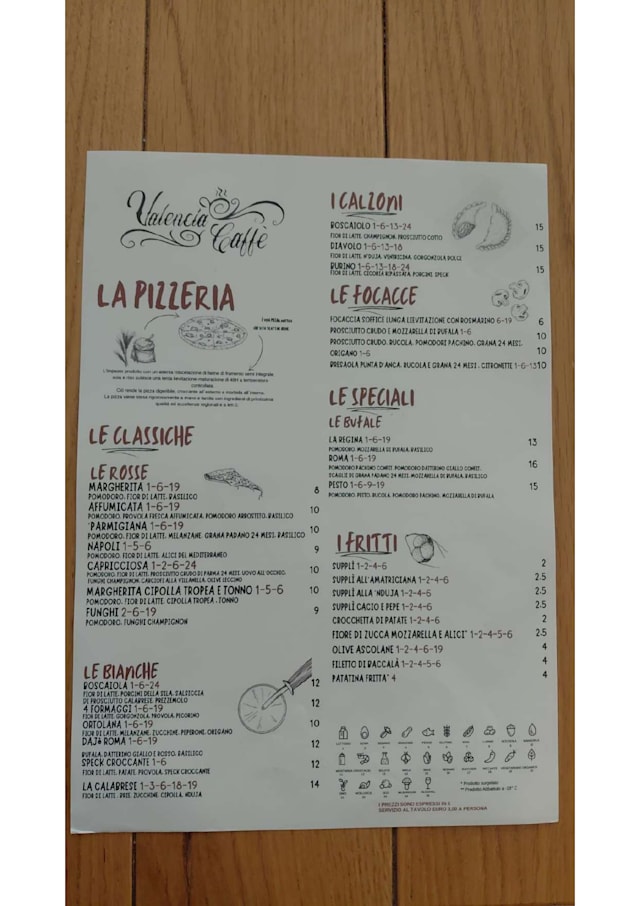 Valencia
Caffè
LA PIZZERIA
LE CLASSICHE
LE ROSSE
MARGHERITA 1-6-19 8
POMODORO, FIOR DI LATTE, BASILICO
AFFUMICATA 1-6-19 10
POMODORO, PROVOLA FRESCA AFFUMICATA, POMODORO ARROSTITO, BASILICO
'PARMIGIANA 1-6-19 10
POMODORO, FIOR DI LATTE, MELANZANE, GRANA PADANO 24 MESI, BASILICO
NAPOLI 1-5-6 9
POMODORO, FIOR DI LATTE, ALICI DEL MEDITERRANEO
CAPRICCIOSA 1-2-6-24 10
POMODORO, FIOR DI LATTE, PROSCIUTTO CRUDO DI PARMA 24 MESI, UOVO ALL'OCCHIO,
FUNGHI CHAMPIGNON, CARCIOFI ALLA VILLANELLA, OLIVE LECCINO
MARGHERITA CIPOLLA TROPEA E TONNO 1-5-6 10
POMODORO, FIOR DI LATTE, CIPOLLA TROPEA, TONNO
FUNGHI 2-6-19 9
POMODORO, FUNGHI CHAMPIGNON
LE BIANCHE
BOSCAIOLA 1-6-24 12
FIOR DI LATTE, PORCINI DELLA SILA, SALSICCIA
DI PROSCIUTTO CALABRESE, PREZZEMOLO
4 FORMAGGI 1-6-19 12
FIOR DE LATTE, GORGONZOLA, PROVOLA, PECORINO
ORTOLANA 1-6-19 10
FIOR DI LATTE, MELANZANE, ZUCCHINE, PEPERONE, ORIGANO
DAJE ROMA 1-6-19 12
BUFALA, DATTERINO GIALLO E ROSSO, BASILICO
SPECK CROCCANTE 1-6 12
FIOR DI LATTE, PATATE, PROVOLA, SPECK CROCCANTE
LA CALABRESE 1-3-6-18-19 14
FIOR DI LATTE, ZUCCHINE, CIPOLLA, NDUJA
I CALZONI
BOSCAIOLO 1-6-13-24 15
FIOR DI LATTE, CHAMPIGNON, PROSCIUTTO COTTO
DIAVOLO 1-6-13-18 15
FIOR DI LATTE, N'DUJA, VENTRICINA, GORGONZOLA DOLCE
BURINO 1-6-13-18-24 15
FIOR DI LATTE, CICORIA RIPASSATA, PORCINI, SPECK
LE FOCACCE
FOCACCIA SOFFICE LUNGA LIEVITAZIONE CON ROSMARINO 6-19 6
PROSCIUTTO CRUDO E MOZZARELLA DI BUFALA 1-6 10
PROSCIUTTO CRUDO, RUCOLA, POMODORI PACHINO, GRANA 24 MESI,
ORIGANO 1-6 10
BRESAOLA PUNTA D'ANCA, RUCOLA E GRANA 24 MESI, CITRONETTE 1-6-13 10
LE SPECIALI
LE BUFALE
LA REGINA 1-6-19 13
POMODORO, MOZZARELLA DI BUFALA, BASILICO
ROMA 1-6-19 16
POMODORO PACHINO CONFIT, POMODORO DATTERINO GIALLO CONFIT,
SCAGLIE DI GRANA PADANO 24 MESI, MOZZARELLA DI BUFALA, BASILICO
PESTO 1-6-9-19 15
POMODORO, PESTO, RUCOLA, POMODORO PACHINO, MOZZARELLA DI BUFALA
I FRITTI
SUPPLÌ 1-2-4-6 2
SUPPLÌ ALL'AMATRICIANA 1-2-4-6 2.5
SUPPLÌ ALLA 'NDUJA 1-2-4-6 2.5
SUPPLÌ CACIO E PEPE 1-2-4-6 2.5
CROCCHETTA DI PATATE 1-2-4-6 2
FIORE DI ZUCCA MOZZARELLA E ALICI* 1-2-4-5-6 2.5
OLIVE ASCOLANE 1-2-4-6-19 4
FILETTO DI BACCALÀ 1-2-4-5-6 4
PATATINA FRITTA* 4 4
* Prodotto surgelato
** Prodotto Abbattuto a -18° C
I PREZZI SONO ESPRESSI IN €
SERVIZIO AL TAVOLO EURO 3,00 A PERSONA